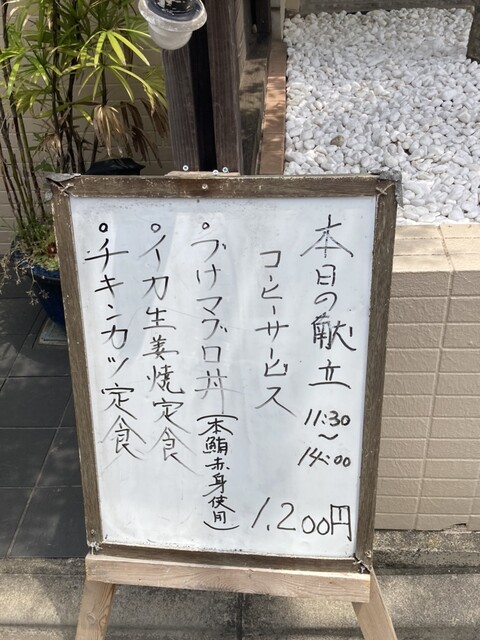 本日の献立 11:30〜14:00
コーヒーサービス
1,200円
°づけマグロ丼(本鮪赤身使用)
°イカ生姜焼定食
°チキンカツ定食